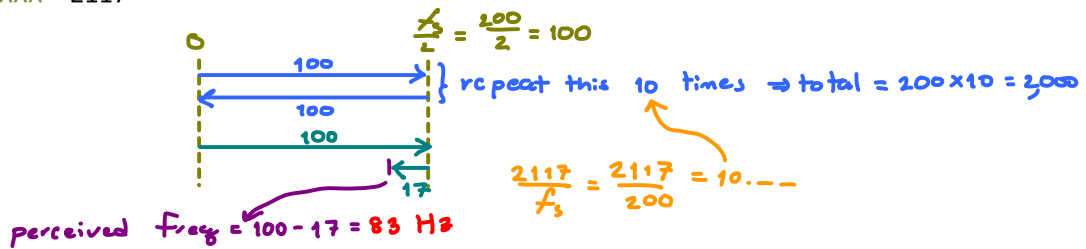 2117
0
fs/2 = 200/2 = 100
100
100
} repeat this 10 times ⇒ total = 200 × 10 = 2,000
100
17
2117/fs = 2117/200 = 10.---
perceived freq = 100 - 17 = 83 Hz